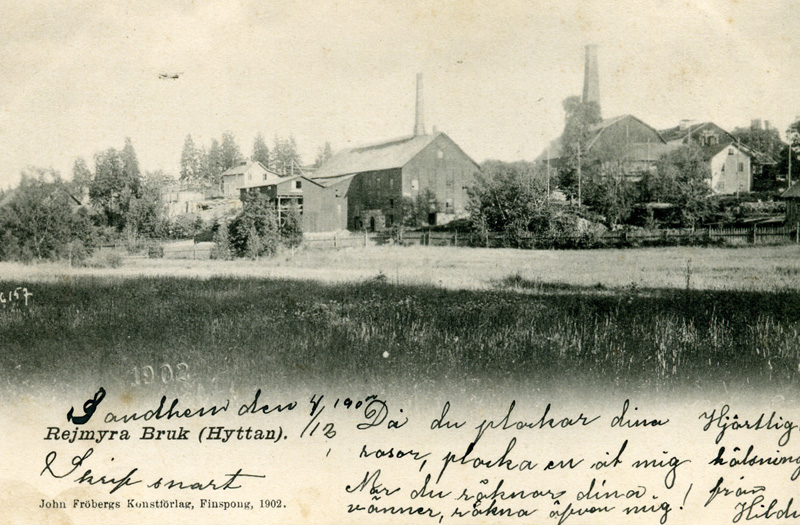 6157
1902
Sandhem den 4/12 1902
Rejmyra Bruk (Hyttan).
Skrif snart
John Fröbergs Konstförlag, Finspong, 1902.
Då du plockar dina
rosor, plocka en åt mig
När du räknar dina
vänner, räkna äfven mig!
Hjärtlig
hälsning
från
Hilda